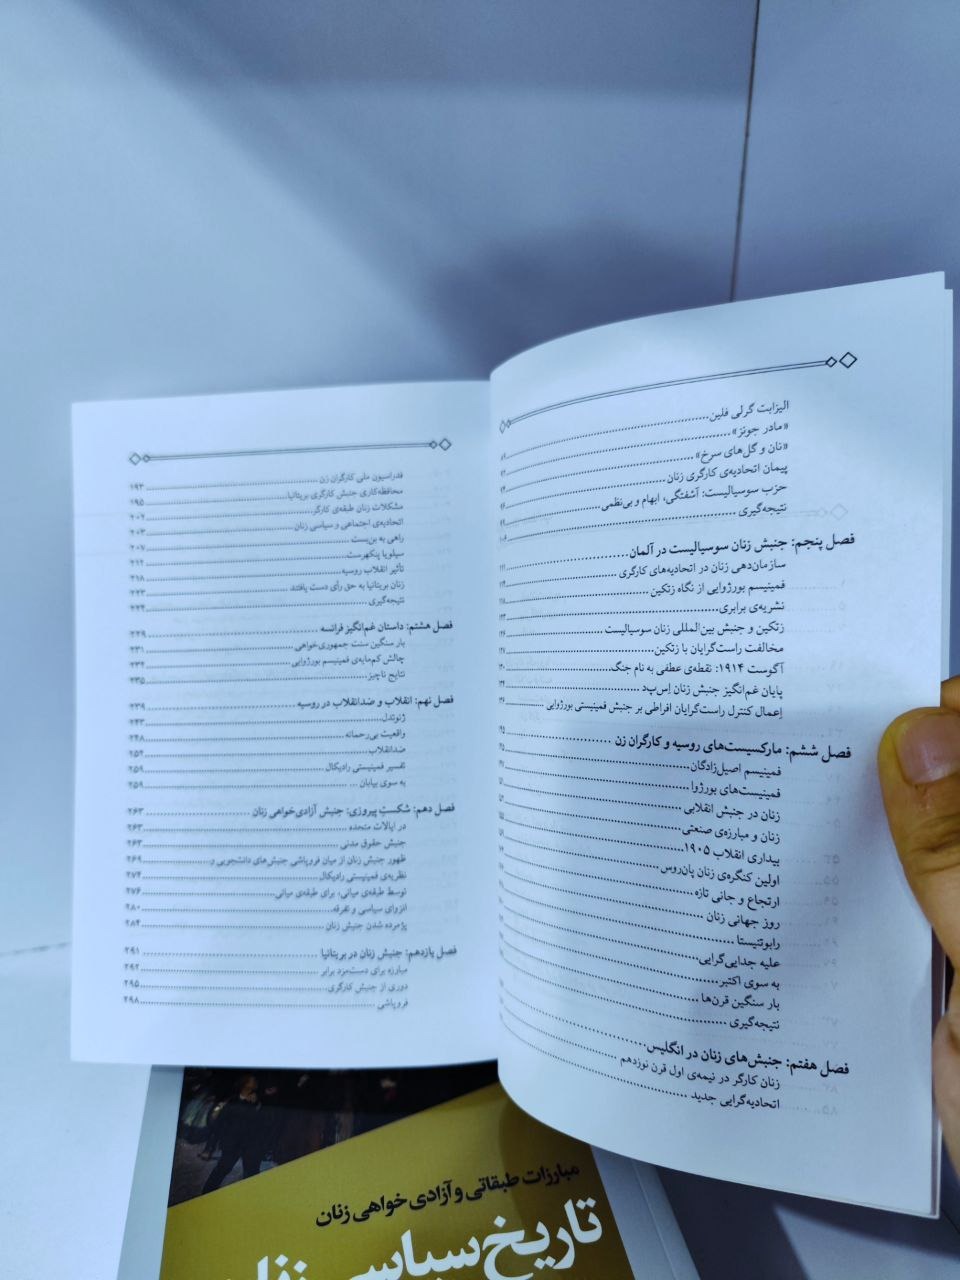 الیزابت گرلی فلین
«مادر جونز»
«نان و گل‌های سرخ»
پیمان اتحادیه‌ی کارگری زنان
حزب سوسیالیست: آشفتگی، ابهام و بی‌نظمی
نتیجه‌گیری
فصل پنجم: جنبش زنان سوسیالیست در آلمان
سازمان‌دهی زنان در اتحادیه‌های کارگری
فمینیسم بورژوایی از نگاه زتکین
نشریه‌ی برابری
زتکین و جنبش بین‌المللی زنان سوسیالیست
مخالفت راست‌گرایان با زتکین
آگوست ۱۹۱۴: نقطه‌ی عطفی به نام جنگ
پایان غم‌انگیز جنبش زنان اِس‌پ‌د
اِعمال کنترل راست‌گرایان افراطی بر جنبش فمینیستی بورژوایی
فصل ششم: مارکسیست‌های روسیه و کارگران زن
فمینیسم اصیل‌زادگان
فمینیست‌های بورژوا
زنان در جنبش انقلابی
زنان و مبارزه‌ی صنعتی
بیداری انقلاب ۱۹۰۵
اولین کنگره‌ی زنان پان‌روس
ارتجاع و جانی تازه
روز جهانی زنان
رابوتنیستا
علیه جدایی‌گرایی
به سوی اکتبر
بار سنگین قرن‌ها
نتیجه‌گیری
فصل هفتم: جنبش‌های زنان در انگلیس
زنان کارگر در نیمه‌ی اول قرن نوزدهم
اتحادیه‌گرایی جدید
فدراسیون ملی کارگران زن ۱۹۳
محافظه‌کاری جنبش کارگری بریتانیا ۱۹۵
مشکلات زنان طبقه‌ی کارگر ۲۰۲
اتحادیه‌ی اجتماعی و سیاسی زنان ۲۰۳
راهی به بن‌بست ۲۰۷
سیلویا پنکهرست ۲۱۲
تأثیر انقلاب روسیه ۲۱۸
زنان بریتانیا به حق رأی دست یافتند ۲۲۳
نتیجه‌گیری ۲۲۴
فصل هشتم: داستان غم‌انگیز فرانسه ۲۲۹
بار سنگین سنت جمهوری‌خواهی ۲۳۱
چالش کم‌مایه‌ی فمینیسم بورژوایی ۲۳۲
نتایج ناچیز ۲۳۵
فصل نهم: انقلاب و ضدانقلاب در روسیه ۲۳۹
ژنوتدل ۲۴۳
واقعیت بی‌رحمانه ۲۴۸
ضدانقلاب ۲۵۴
تفسیر فمینیستی رادیکال ۲۵۹
به سوی بیابان ... ۲۵۹
فصل دهم: شکستِ پیروزی: جنبش آزادی‌خواهی زنان ۲۶۳
در ایالات متحده ۲۶۳
جنبش حقوق مدنی ۲۶۳
ظهور جنبش زنان از میان فروپاشی جنبش‌های دانشجویی و ۲۶۹
نظریه‌ی فمینیستی رادیکال ۲۷۴
توسط طبقه‌ی میانی، برای طبقه‌ی میانی ۲۷۶
انزوای سیاسی و تفرقه ۲۸۰
پژمرده شدن جنبش زنان ۲۸۴
فصل یازدهم: جنبش زنان در بریتانیا ۲۹۱
مبارزه برای دستمزد برابر ۲۹۲
دوری از جنبش کارگری ۲۹۵
فروپاشی ۲۹۸
مبارزات طبقاتی و آزادی خواهی زنان
تاریخ سیاسی